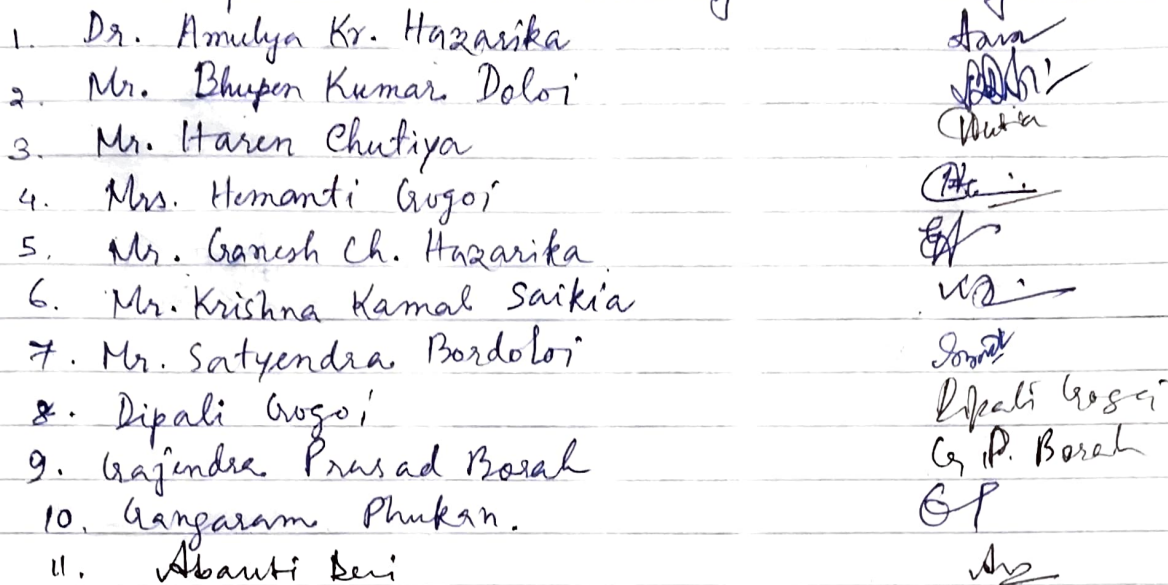 1. Dr. Amulya Kr. Hazarika
2. Mr. Bhupen Kumar Doloi
3. Mr. Haren Chutiya Chutia
4. Mrs. Hemanti Gogoi
5. Mr. Ganesh Ch. Hazarika
6. Mr. Krishna Kamal Saikia
7. Mr. Satyendra Bordoloi
8. Dipali Gogoi Dipali Gogoi
9. Gajendra Prasad Borah G.P. Borah
10. Gangaram Phukan. GP
11. Abanti Devi